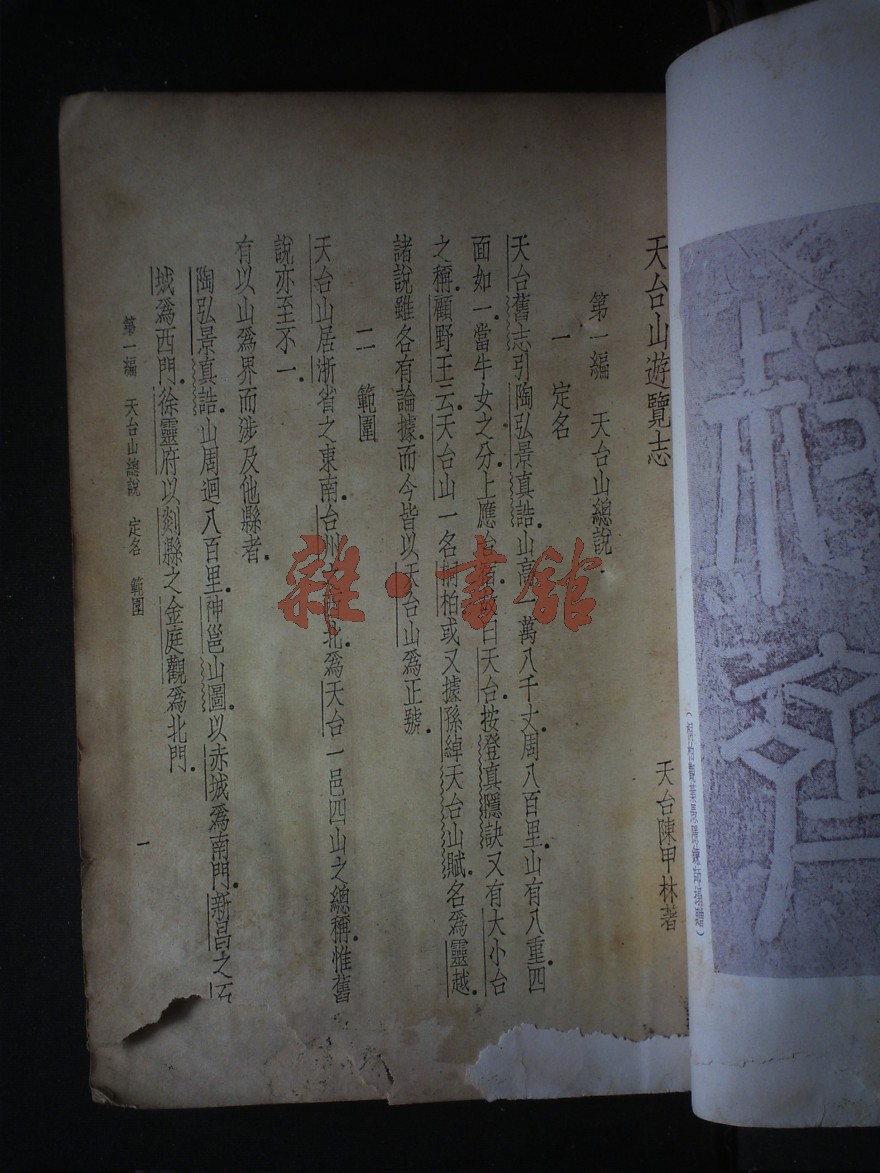 天台山遊覽志
天台陳甲林著
第一編　天台山總說
一　定名
天台舊志引陶弘景真誥.山高一萬八千丈.周八百里.山有八重.四
面如一.當牛女之分.上應台宿.故曰天台.按登真隱訣又有大小台
之稱.顧野王云.天台山一名桐柏.或又據孫綽天台山賦.名爲靈越.
諸說雖各有論據.而今皆以天台山爲正號.
二　範圍
天台山居浙省之東南.台州 北.爲天台一邑四山之總稱.惟舊
說亦至不一.
有以山爲界而涉及他縣者.
陶弘景真誥.山周迴八百里.神邕山圖.以赤城爲南門.新昌之石
城爲西門.徐靈府以剡縣之金庭觀爲北門.
第一編　天台山總說　定名　範圍
一
雜·書館